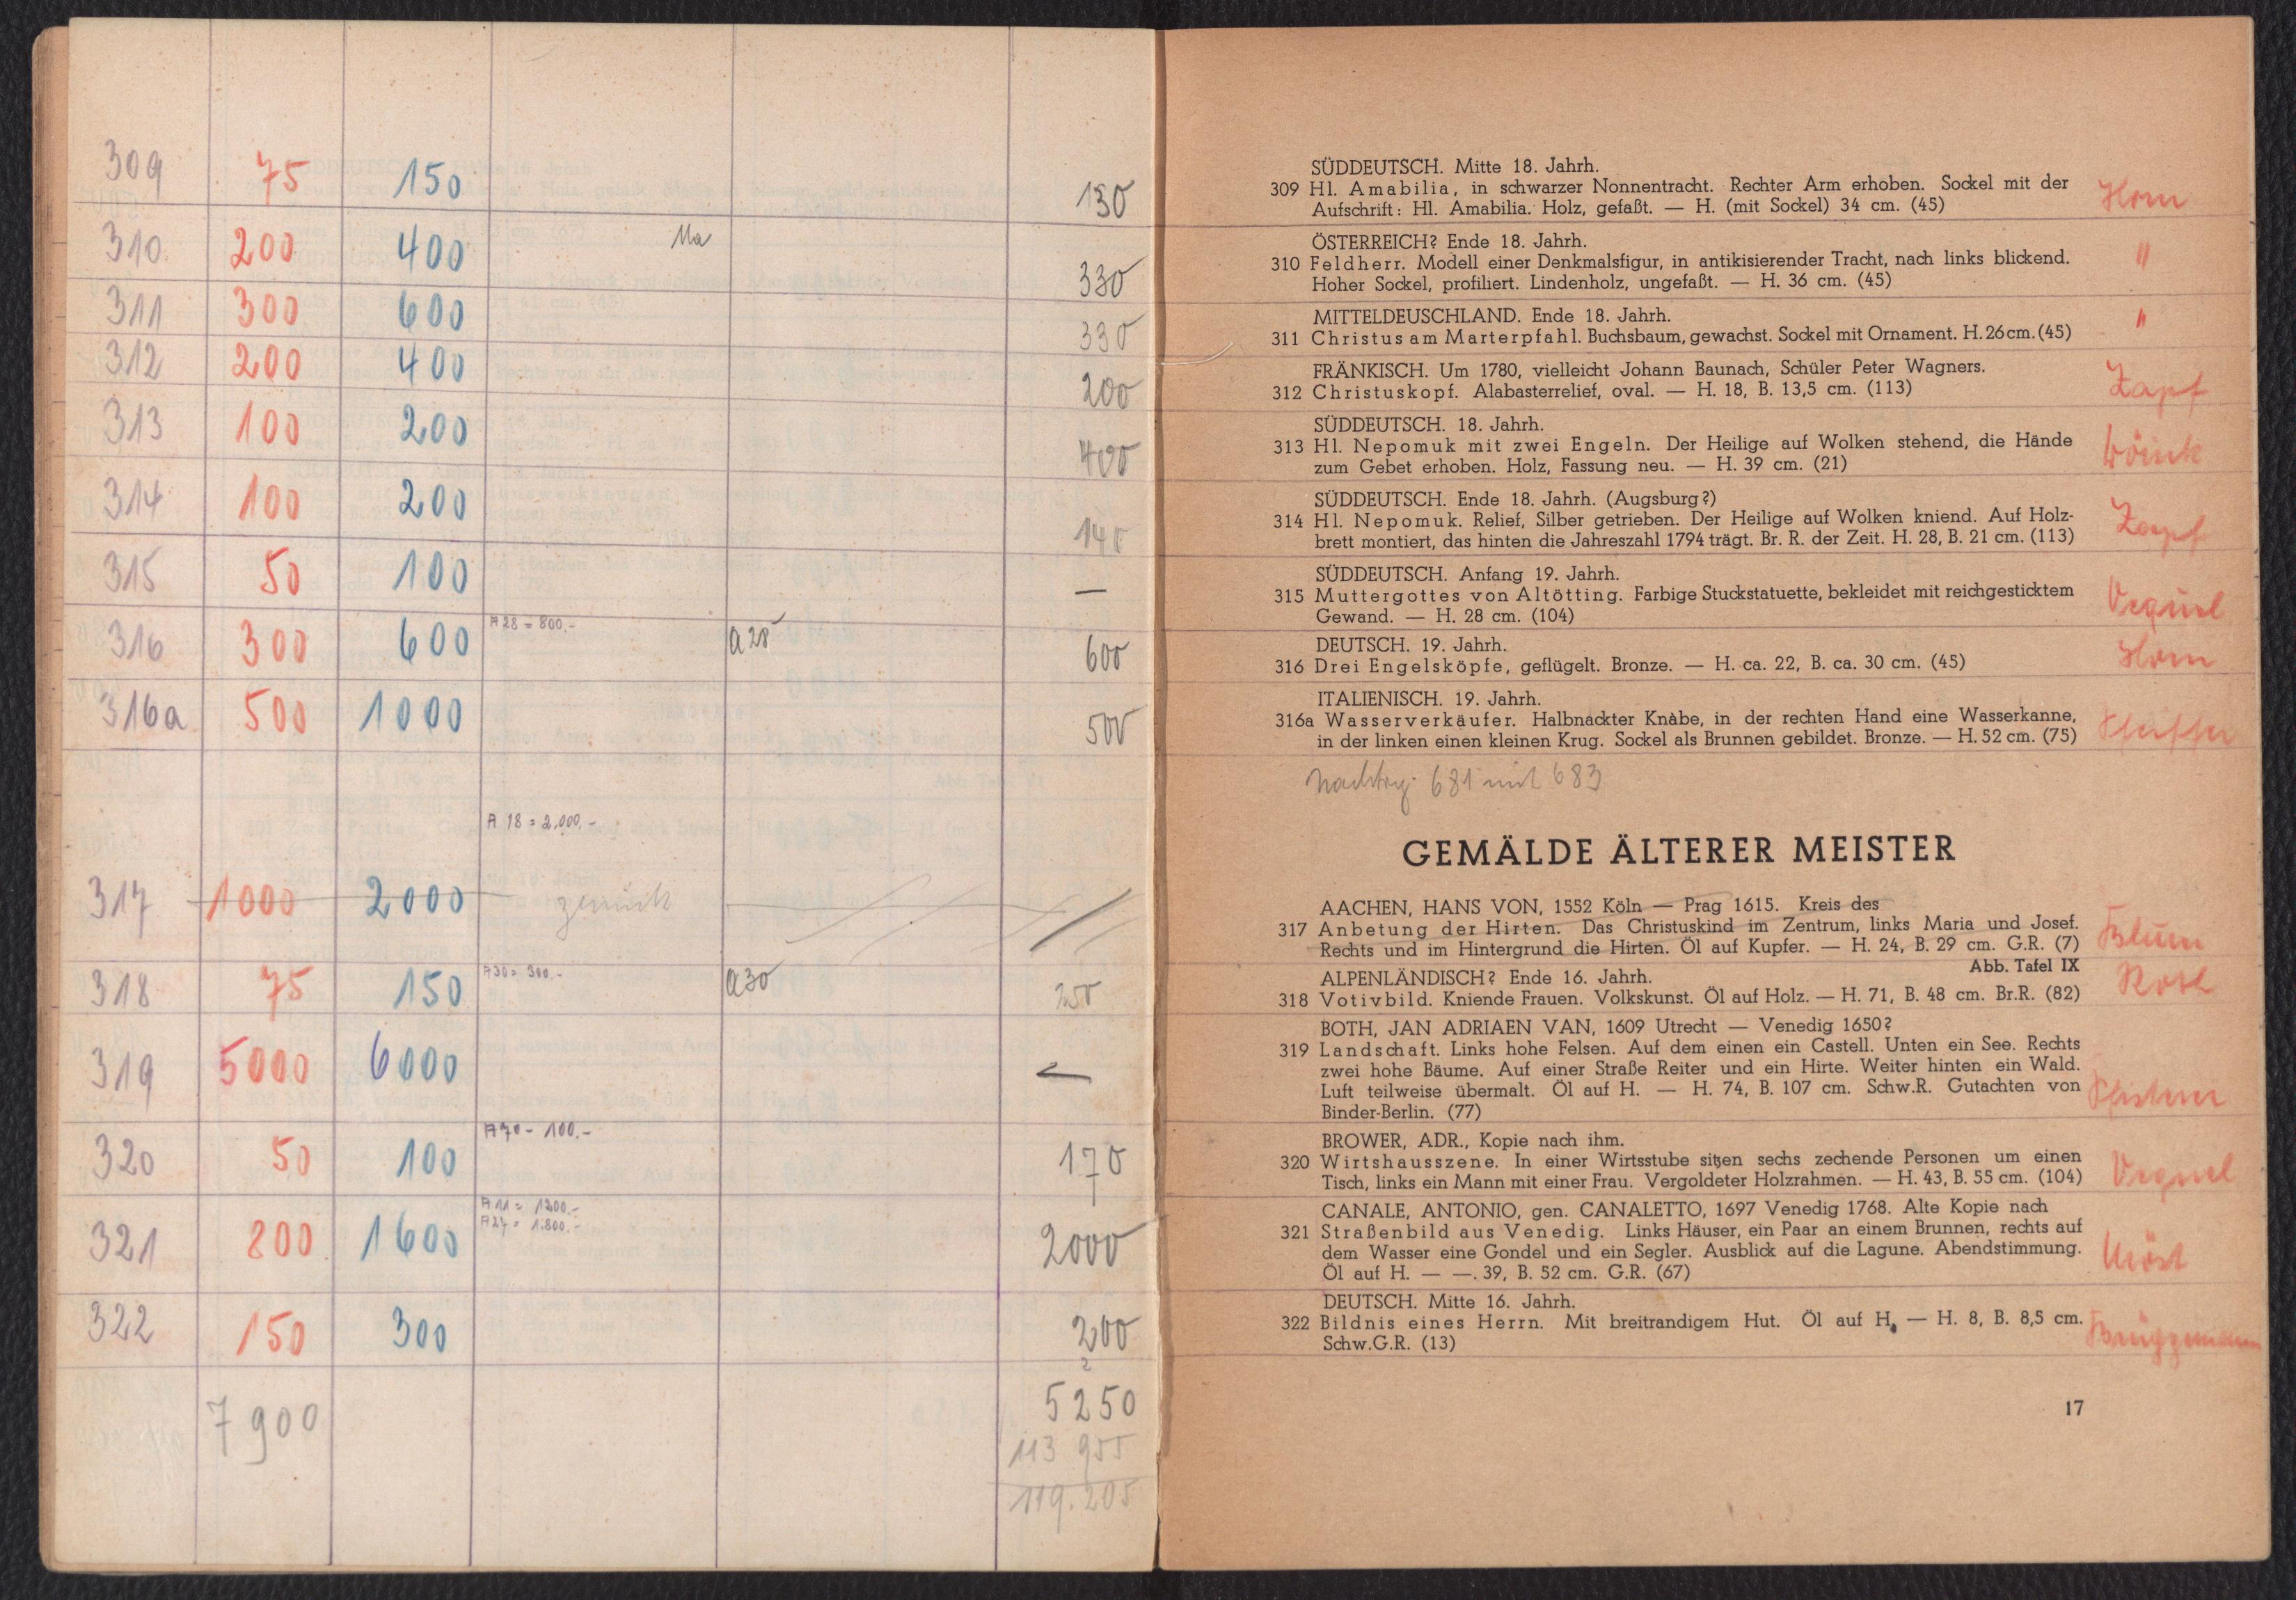 309 75 150 130
310 200 400 Ma 330
311 300 600 330
312 200 400 200
313 100 200 400
314 100 200 140
315 50 100 —
316 300 600 A 28 = 800.- a 28 600
316a 500 1000 500
A 18 = 2,000.-
317 1000 2000 zurück
318 75 150 A 30 = 300.- a 30 250
319 5000 6000 —
320 50 100 A 70 - 100.- 170
321 800 1600 A 11 = 1200.- 2000
A 27 = 1.800.-
322 150 300 200
2
7900 5250
113 955
119.205
SÜDDEUTSCH. Mitte 18. Jahrh.
309 Hl. Amabilia, in schwarzer Nonnentracht. Rechter Arm erhoben. Sockel mit der Horn
Aufschrift: Hl. Amabilia. Holz, gefaßt. — H. (mit Sockel) 34 cm. (45)
ÖSTERREICH? Ende 18. Jahrh.
310 Feldherr. Modell einer Denkmalsfigur, in antikisierender Tracht, nach links blickend. "
Hoher Sockel, profiliert. Lindenholz, ungefaßt. — H. 36 cm. (45)
MITTELDEUSCHLAND. Ende 18. Jahrh. "
311 Christus am Marterpfahl. Buchsbaum, gewachst. Sockel mit Ornament. H. 26 cm. (45)
FRÄNKISCH. Um 1780, vielleicht Johann Baunach, Schüler Peter Wagners.
312 Christuskopf. Alabasterrelief, oval. — H. 18, B. 13,5 cm. (113) Zapf
SÜDDEUTSCH. 18. Jahrh.
313 Hl. Nepomuk mit zwei Engeln. Der Heilige auf Wolken stehend, die Hände
zum Gebet erhoben. Holz, Fassung neu. — H. 39 cm. (21)
SÜDDEUTSCH. Ende 18. Jahrh. (Augsburg?)
314 Hl. Nepomuk. Relief, Silber getrieben. Der Heilige auf Wolken kniend. Auf Holz- Zapf
brett montiert, das hinten die Jahreszahl 1794 trägt. Br. R. der Zeit. H. 28, B. 21 cm. (113)
SÜDDEUTSCH. Anfang 19. Jahrh.
315 Muttergottes von Altötting. Farbige Stuckstatuette, bekleidet mit reichgesticktem
Gewand. — H. 28 cm. (104)
DEUTSCH. 19. Jahrh.
316 Drei Engelsköpfe, geflügelt. Bronze. — H. ca. 22, B. ca. 30 cm. (45) Horn
ITALIENISCH. 19. Jahrh.
316a Wasserverkäufer. Halbnackter Knàbe, in der rechten Hand eine Wasserkanne, Pfeiffer
in der linken einen kleinen Krug. Sockel als Brunnen gebildet. Bronze. — H. 52 cm. (75)
Nachtrg. 681 mit 683
GEMÄLDE ÄLTERER MEISTER
AACHEN, HANS VON, 1552 Köln — Prag 1615. Kreis des
317 Anbetung der Hirten. Das Christuskind im Zentrum, links Maria und Josef. Blum
Rechts und im Hintergrund die Hirten. Öl auf Kupfer. — H. 24, B. 29 cm. G.R. (7)
Abb. Tafel IX
ALPENLÄNDISCH? Ende 16. Jahrh.
318 Votivbild. Kniende Frauen. Volkskunst. Öl auf Holz. — H. 71, B. 48 cm. Br.R. (82)
BOTH, JAN ADRIAEN VAN, 1609 Utrecht — Venedig 1650?
319 Landschaft. Links hohe Felsen. Auf dem einen ein Castell. Unten ein See. Rechts
zwei hohe Bäume. Auf einer Straße Reiter und ein Hirte. Weiter hinten ein Wald.
Luft teilweise übermalt. Öl auf H. — H. 74, B. 107 cm. Schw.R. Gutachten von
Binder-Berlin. (77)
BROWER, ADR., Kopie nach ihm.
320 Wirtshausszene. In einer Wirtsstube sitzen sechs zechende Personen um einen
Tisch, links ein Mann mit einer Frau. Vergoldeter Holzrahmen. — H. 43, B. 55 cm. (104)
CANALE, ANTONIO, gen. CANALETTO, 1697 Venedig 1768. Alte Kopie nach
321 Straßenbild aus Venedig. Links Häuser, ein Paar an einem Brunnen, rechts auf
dem Wasser eine Gondel und ein Segler. Ausblick auf die Lagune. Abendstimmung.
Öl auf H. — —. 39, B. 52 cm. G.R. (67)
DEUTSCH. Mitte 16. Jahrh.
322 Bildnis eines Herrn. Mit breitrandigem Hut. Öl auf H. — H. 8, B. 8,5 cm. Brüggemann
Schw.G.R. (13)
17